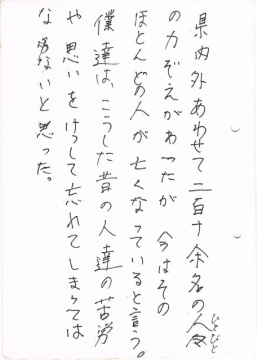 県内外あわせて二百十余名の人々
ひとびと
の力ぞえがあったが 今はその
ほとんどの人が亡くなっていると言う。
僕達は、こうした昔の人達の苦労
や思いをけっして忘れてしまっては
ならないと思った。